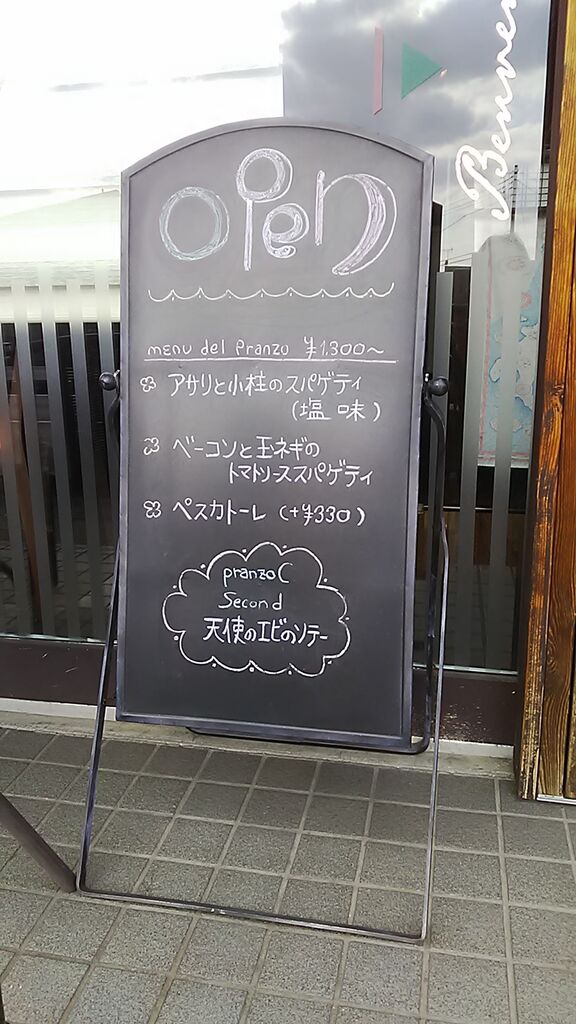 Benven
open
menu del Pranzo ¥1,300〜
アサリと小柱のスパゲティ
(塩味)
ベーコンと玉ネギの
トマトソーススパゲティ
ペスカトーレ (+¥330)
pranzo C
Second
天使のエビのソテー